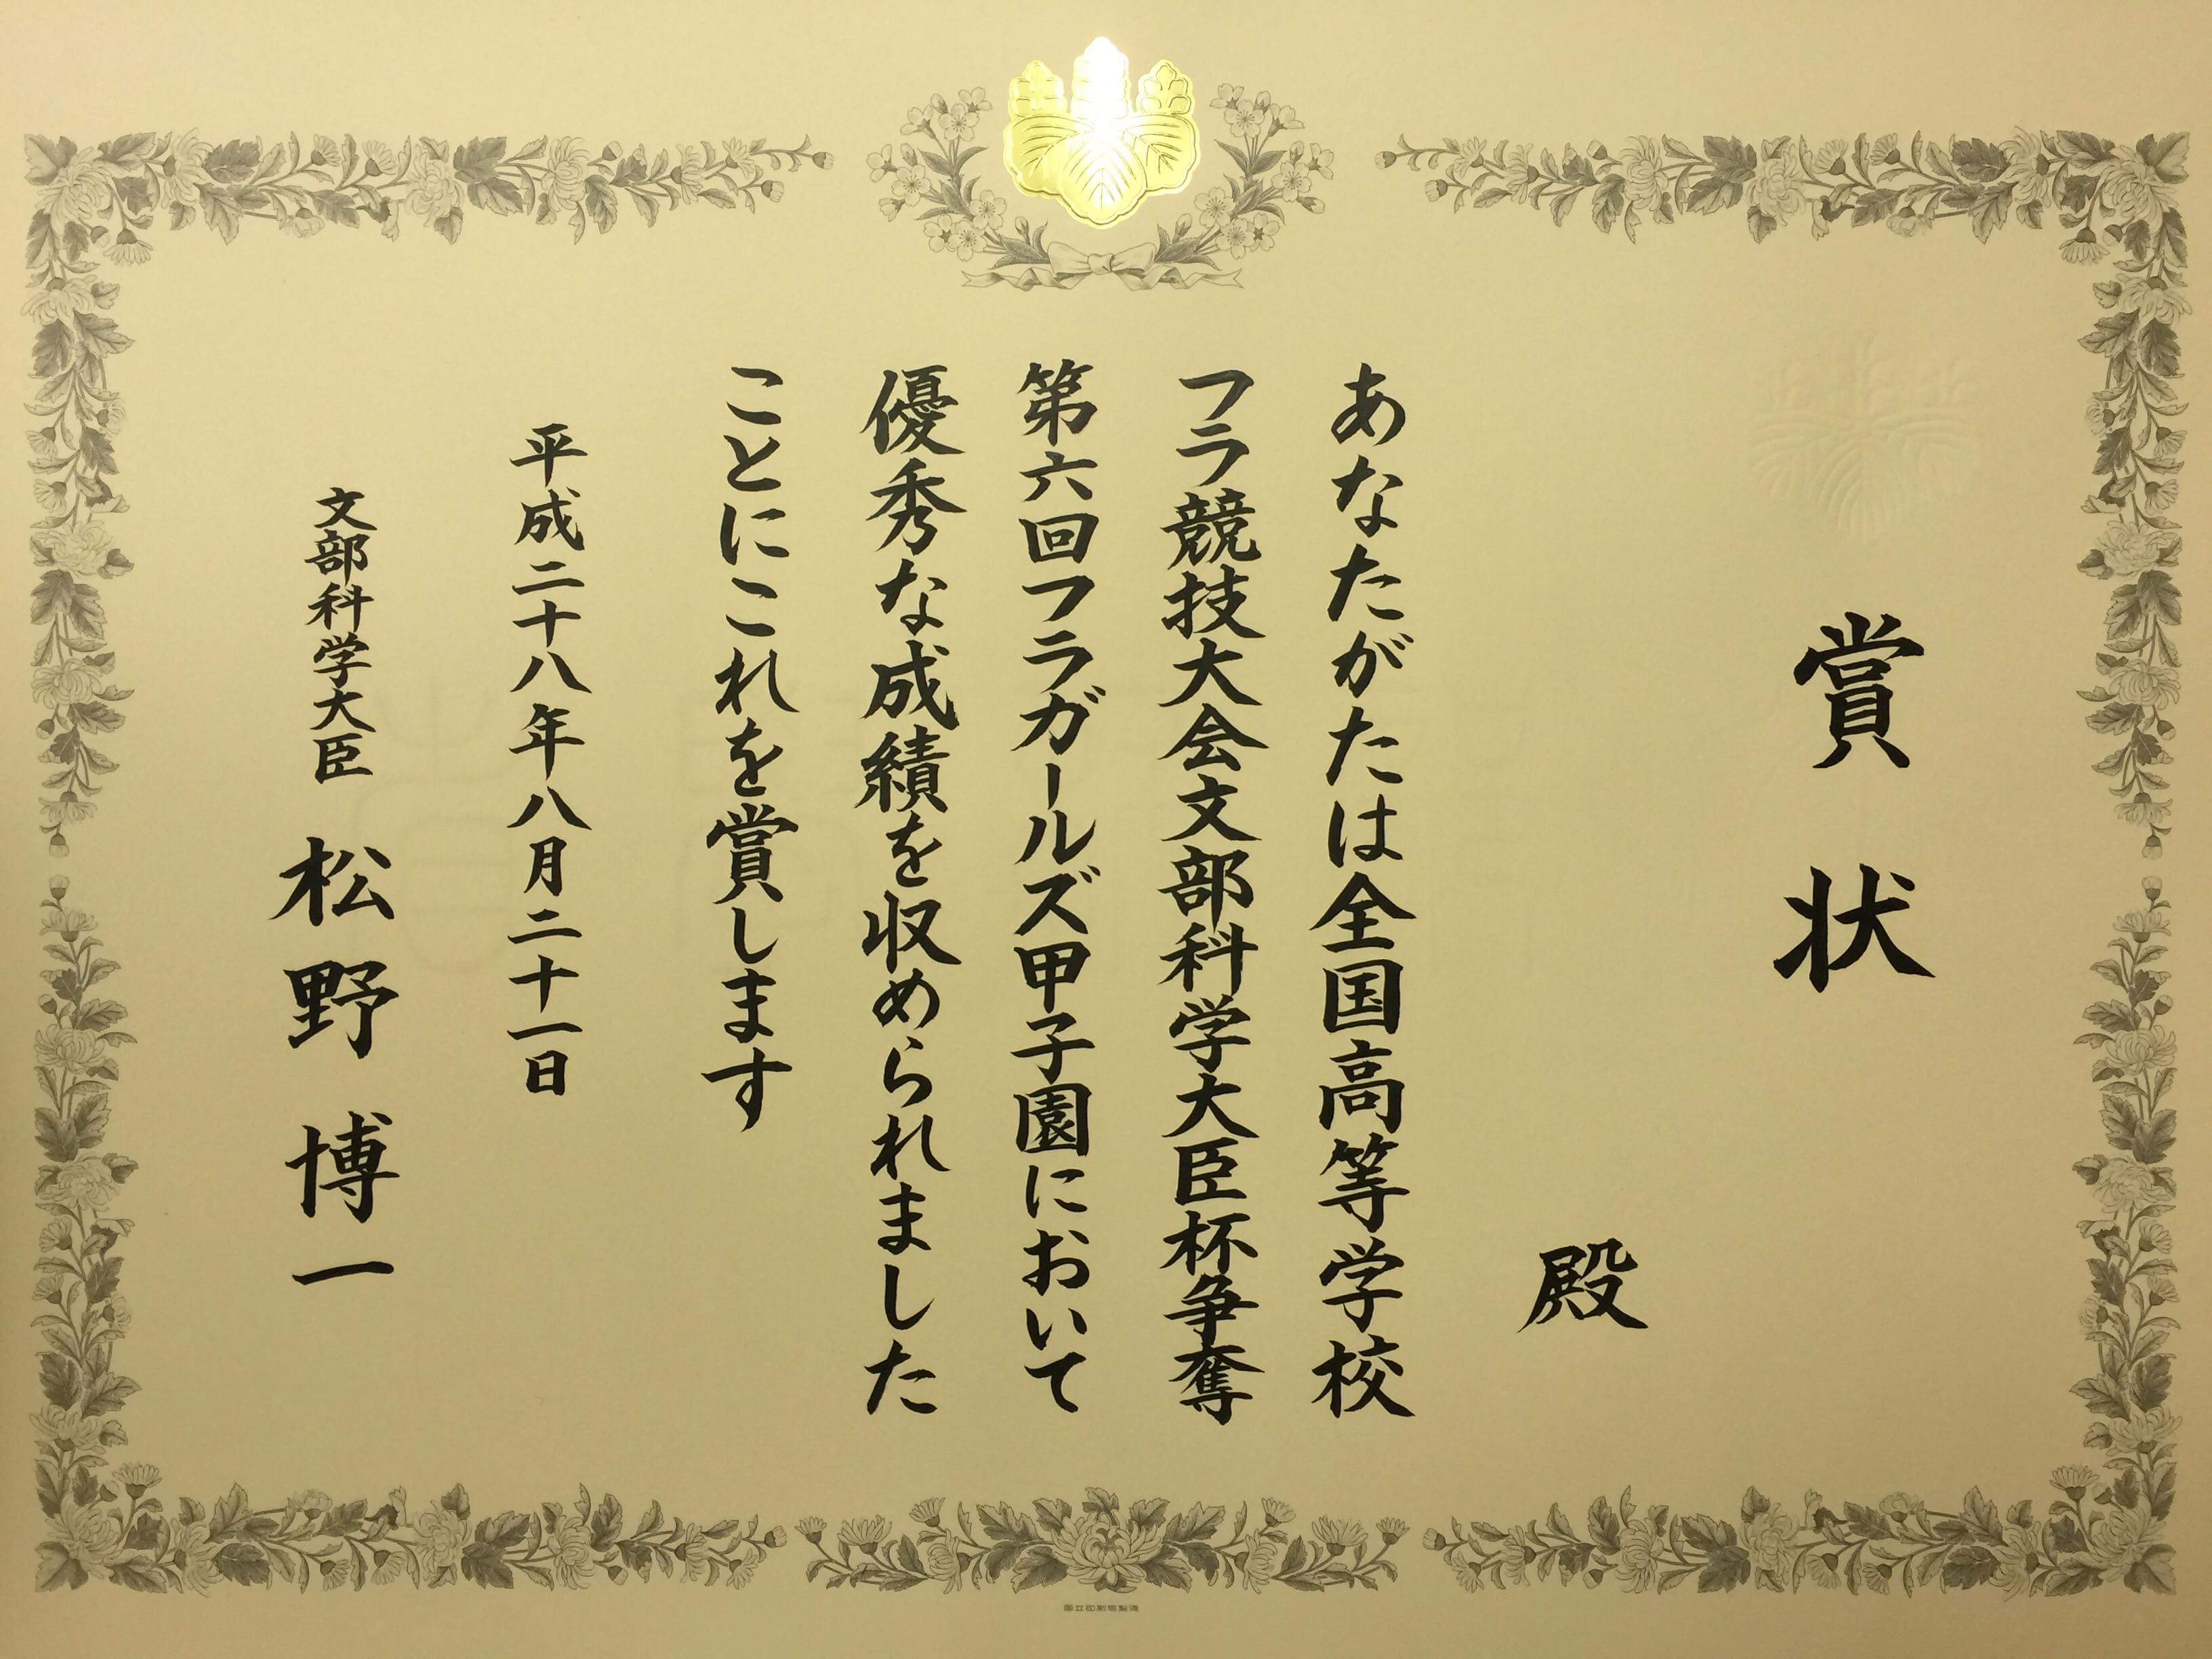 賞状
殿
あなたがたは全国高等学校
フラ競技大会文部科学大臣杯争奪
第六回フラガールズ甲子園において
優秀な成績を収められました
ことにこれを賞します
平成二十八年八月二十一日
文部科学大臣 松野博一